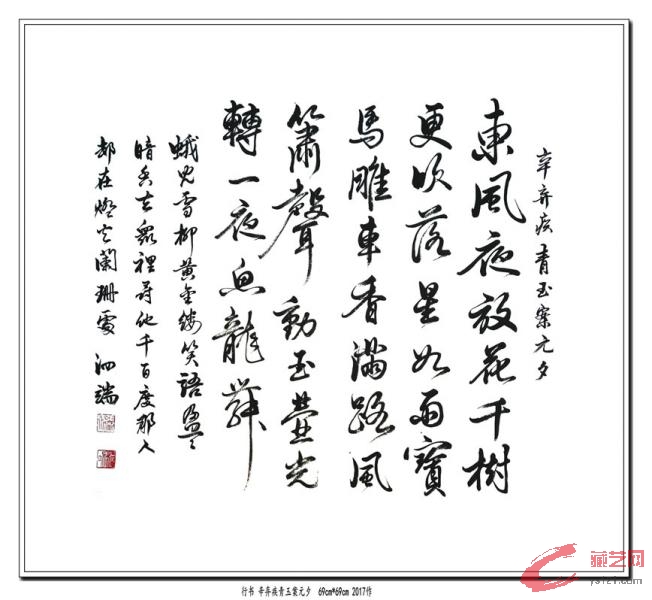 辛弃疾青玉案元夕
東風夜放花千樹
更吹落星如雨寶
馬雕車香滿路風
簫聲動玉壺光
轉一夜魚龍舞
蛾兒雪柳黄金缕笑語盈々
暗香去衆裡尋他千百度那人
却在燈火蘭珊處 泗端
行书 辛弃疾青玉案元夕 69cm*69cm 2017作
藏艺网